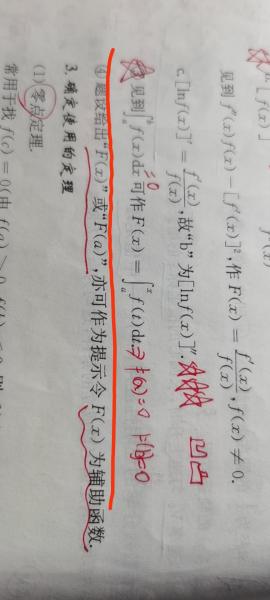 见到f''(x)f(x)-[f'(x)]²,作F(x)=f'(x)/f(x),f(x)≠0.
c.[lnf(x)]'=f'(x)/f(x),故“b”为[lnf(x)]''. 凹凸
见到∫ₐᵇf(x)dx=0可作F(x)=∫ₐˣf(t)dt.⇒F(a)=0 F(b)=0
(4)题设给出“F(x)”或“F(a)”,亦可作为提示令F(x)为辅助函数.
3.确定使用的定理
(1)零点定理.
常用于找f(c)=0(由f(a)>0